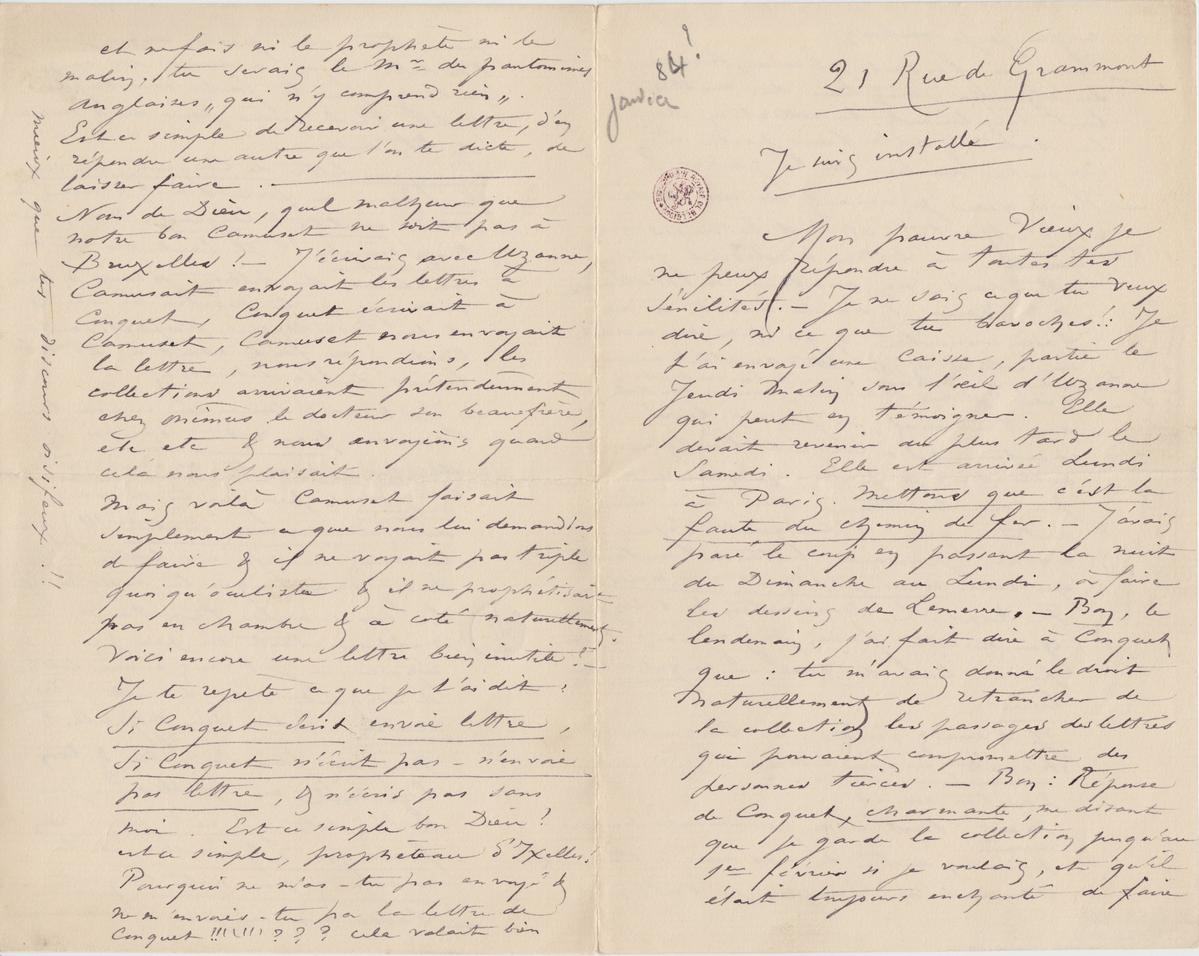 21 Rue de Grammont
Janvier 84?
Je suis installé.
Mon pauvre Vieux je
ne peux répondre à toutes tes
sénilités. — Je ne sais ce que tu veux
dire, ni ce que tu bavoches!! Je
t'ai envoyé une caisse, partie le
Jeudi Matin sous l'œil d'Uzanne
qui peut en témoigner. Elle
devait revenir au plus tard le
Samedi. Elle est arrivée Lundi
à Paris. Mettons que c'est la
faute du chemin de fer. — J'avais
paré le coup en passant la nuit
du Dimanche au Lundi, à faire
les dessins de Lemerre. — Bon, le
lendemain, j'ai fait dire à Conquet
que : tu m'avais donné le droit
naturellement de retrancher de
la collection les passages des lettres
qui pouvaient compromettre des
personnes tierces. — Bon : Réponse
de Conquet, charmante, me disant
que je garde la collection jusqu'au
1er février si je voulais, et qu'il
était toujours enchanté de faire
et ne fais ni le prophète ni le
malin. tu serais le Mr des pantomimes
anglaises „qui n'y comprend rien„.
Est-ce simple de recevoir une lettre, d'en
répondre une autre que l'on te dicte, de
laisser faire. —
Nom de Dieu, quel malheur que
notre bon Camuset ne soit pas à
Bruxelles! — J'écrivais avec Uzanne,
Camusait envoyait les lettres à
Conquet, Conquet écrivait à
Camuset, Camuset nous envoyait
la lettre, nous répondions, les
collections arrivaient prétendument
chez le docteur son beau frère,
etc etc & nous envoyions quand
cela nous plaisait.
Mais voilà Camuset faisait
simplement ce que nous lui demandions
de faire & il ne voyait pas triple
quoiqu'oculiste & il ne prophétisait
pas en chambre & à coté naturellement.
Voici encore une lettre bien inutile!—
Je te repete ce que je t'ai dit :
Si Conquet écrit envoie lettre,
Si Conquet n'écrit pas — n'envoie
pas lettre, & n'écris pas sans
moi. Est ce simple bon Dieu?
est ce simple, prophéteau d'Ixelles!
Pourquoi ne m'as-tu pas envoyé &
ne m'envoies-tu pas la lettre de
Conquet !!!!!!! ? ? ? cela valait bien
mieux que tes discours oiseux.!!